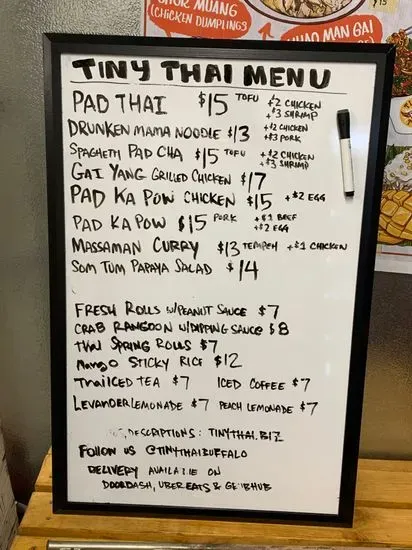 CHOR MUANG
(CHICKEN DUMPLINGS)
KHAO MAN GAI
TINY THAI MENU
PAD THAI $15 TOFU +$2 CHICKEN
+$3 SHRIMP
DRUNKEN MAMA NOODLE $13 +$2 CHICKEN
+$3 PORK
SPAGHETTI PAD CHA $15 TOFU +$2 CHICKEN
+$3 SHRIMP
GAI YANG GRILLED CHICKEN $17
PAD KA POW CHICKEN $15 +$2 EGG
PAD KA POW $15 PORK +$1 BEEF
+$2 EGG
MASSAMAN CURRY $13 TEMPEH +$1 CHICKEN
SOM TUM PAPAYA SALAD $14
FRESH ROLLS W/PEANUT SAUCE $7
CRAB RANGOON W/DIPPING SAUCE $8
THAI SPRING ROLLS $7
MANGO STICKY RICE $12
THAI ICED TEA $7 ICED COFFEE $7
LEVANDER LEMONADE $7 PEACH LEMONADE $7
DESCRIPTIONS: TINYTHAI.BIZ
FOLLOW US @TINYTHAIBUFFALO
DELIVERY AVAILABLE ON
DOORDASH, UBER EATS & GRUBHUB